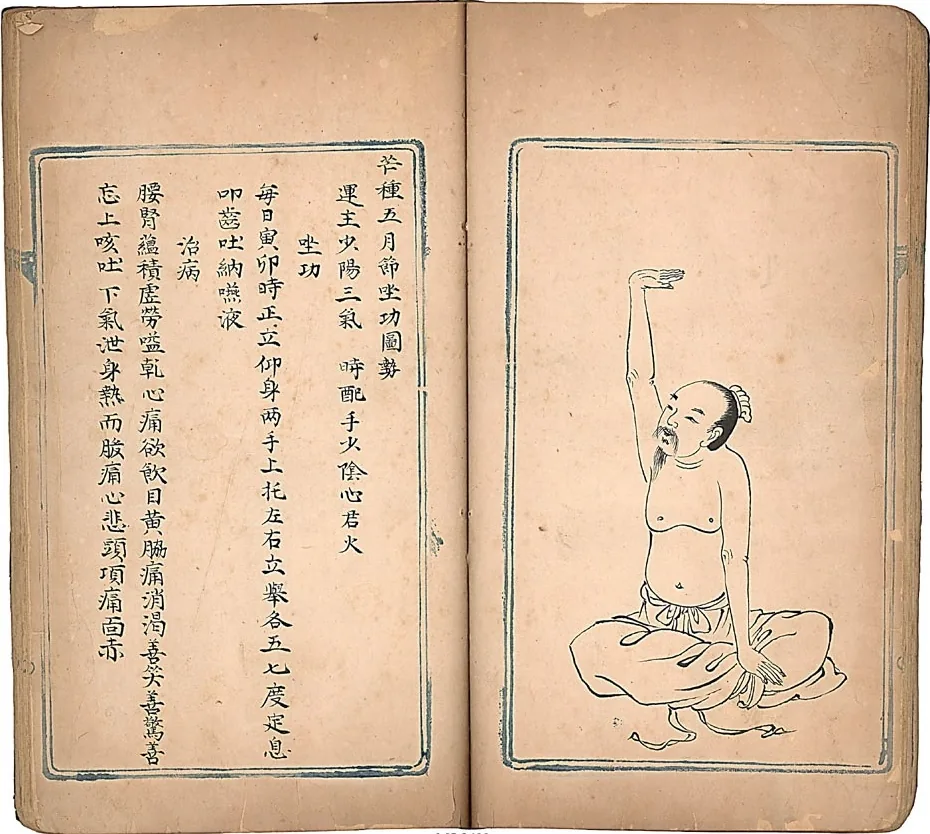 芒種五月節坐功圖勢
運主少陽三氣 時配手少陰心君火
坐功
每日寅卯時正立仰身两手上托左右立舉各五七度定息
叩齒吐納嚥液
治病
腰腎蘊積虛勞嗌乾心痛欲飲目黃脇痛消渴善笑善驚善
忘上咳吐下氣泄身熱而股痛心悲頭項痛面赤